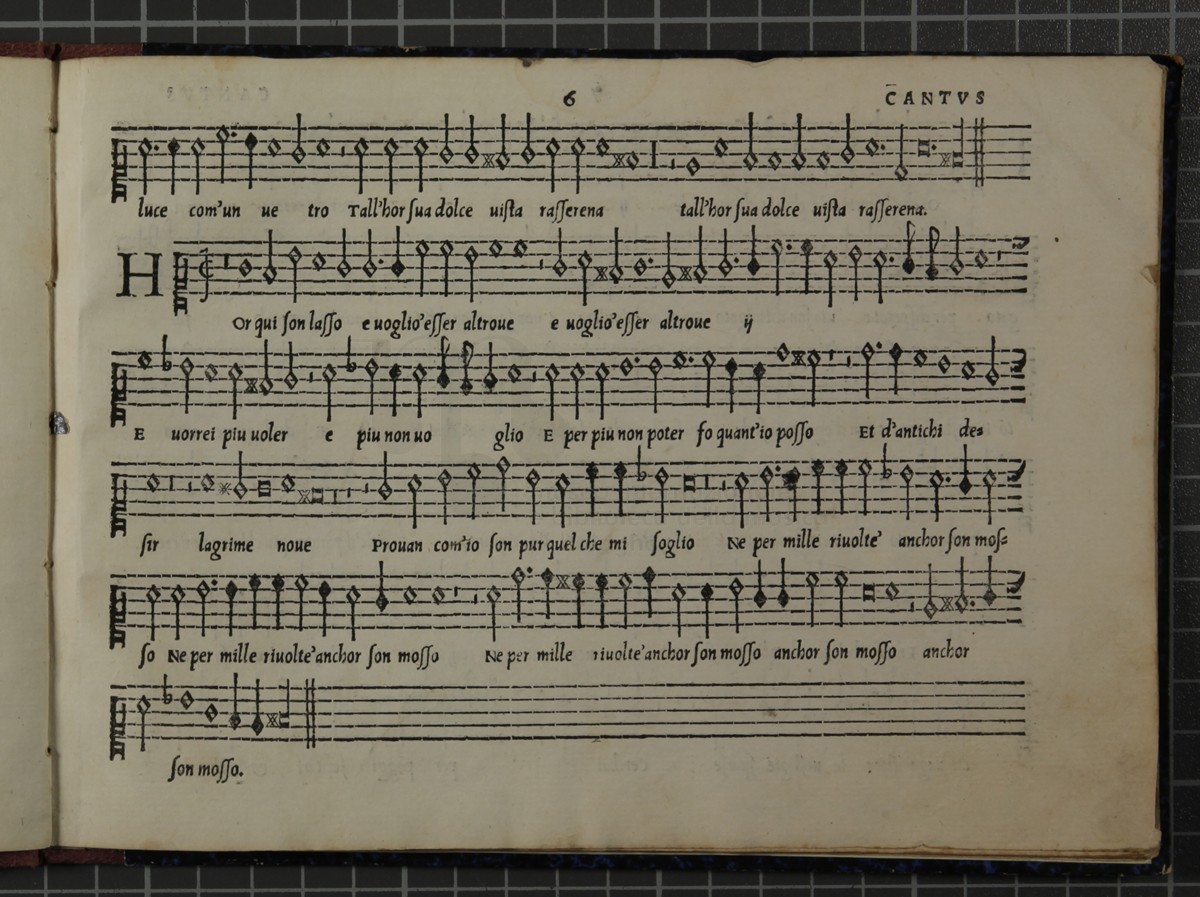 6 CANTVS
luce com'un ue tro Tall'hor sua dolce uista rasserena tall'hor sua dolce uista rasserena.
H
Or qui son lasso e uoglio'esser altroue e uoglio'esser altroue ij
E uorrei piu uoler e piu non uo glio E per piu non poter fo quant'io posso Et d'antichi de=
sir lagrime noue Prouan com'io son pur quel che mi soglio Ne per mille riuolte' anchor son mos=
so Ne per mille riuolte'anchor son mosso Ne per mille riuolte'anchor son mosso anchor son mosso anchor
son mosso.